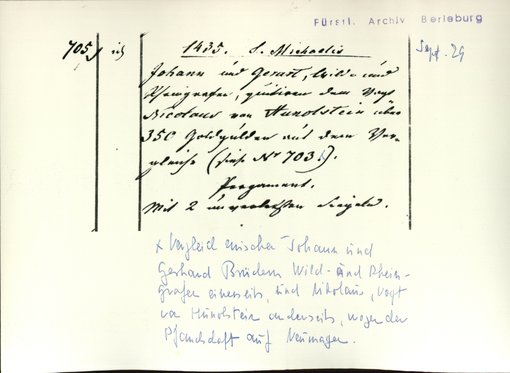 Fürstl. Archiv Berleburg
Sept. 29
705, 1435. S. Michaelis
Johann und Gerart, Wild- und
Rheingrafen, quitiren dem Vogt
Nicolaus von Hunolstein über
350 Goldgülden aus dem Ver-
gleiche (siehe Nr 703.).
Pergament.
Mit 2 unverletzten Siegeln.
x Vergleich zwischen Johann und
Gerhard Brüdern Wild- und Rhein-
grafen einerseits, und Nikolaus, Vogt
von Hunolstein anderseits, wegen der
Pfandschaft auf Neumagen.